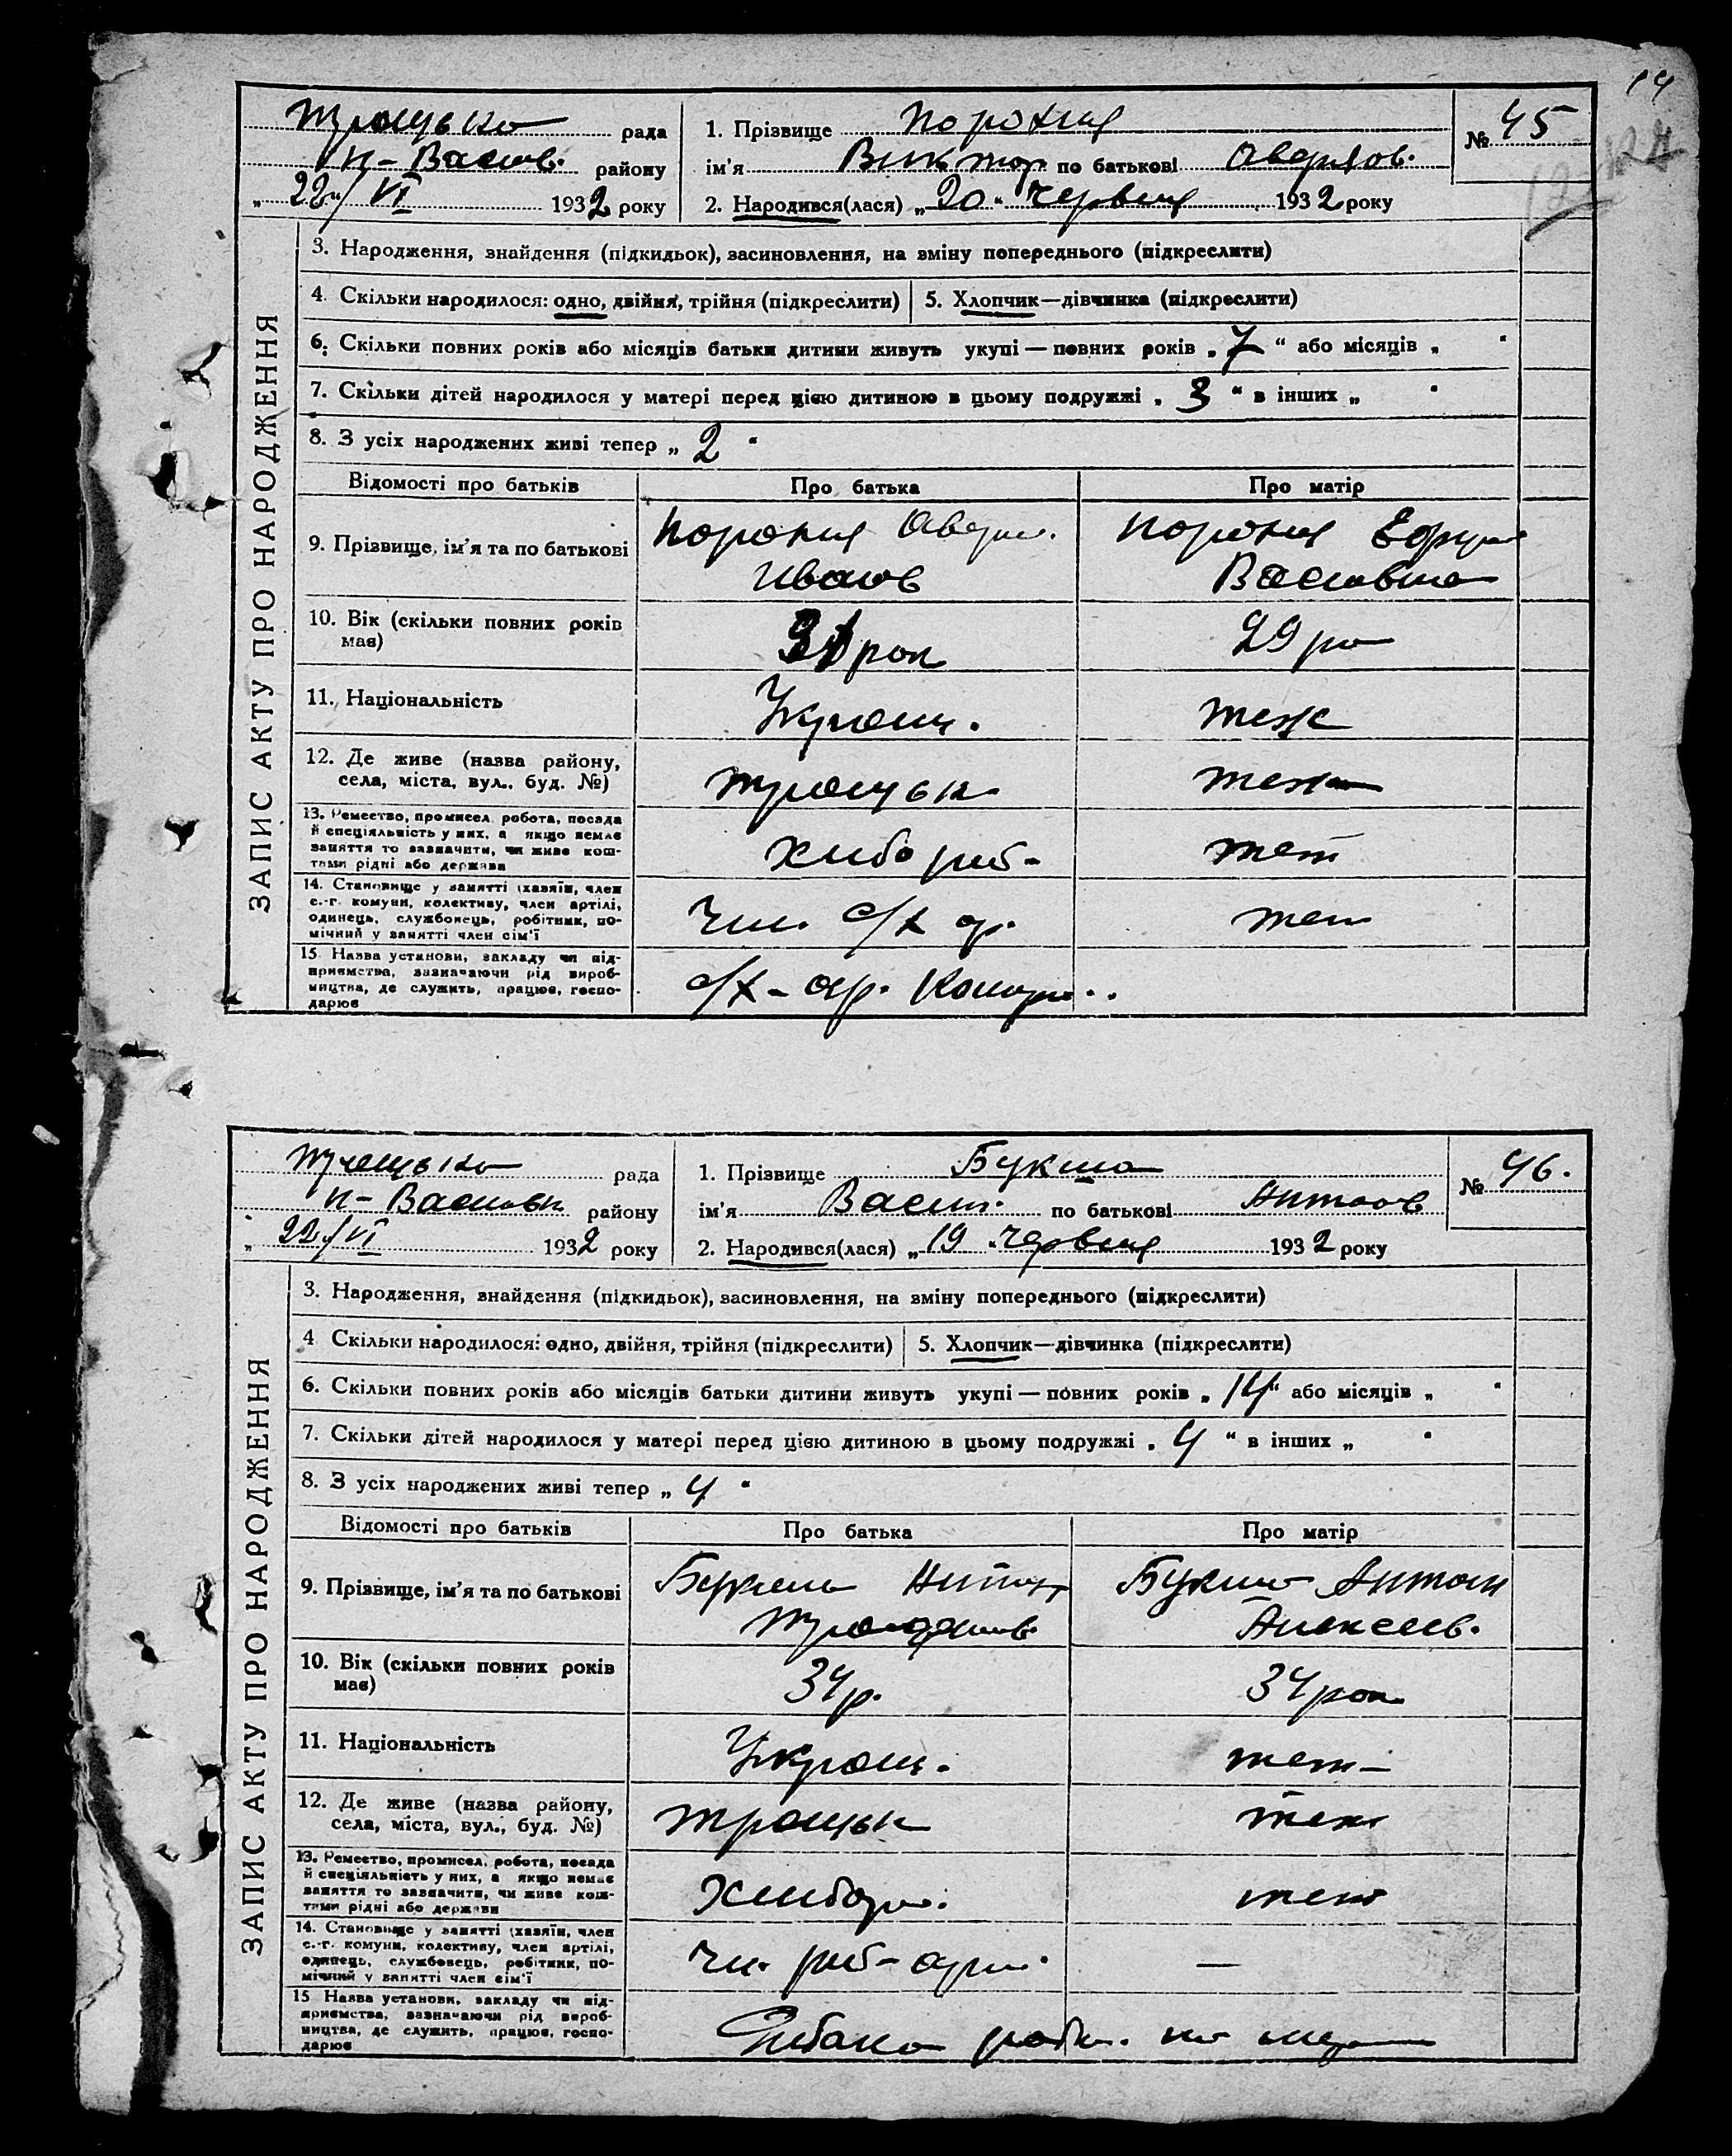 14
рада
н-Васил. району
22/VI 1932 року
1. Прізвище Порохня
ім'я Виктор по батькові
2. Народився(лася) „20“ червня 1932 року
№ 45
ЗАПИС АКТУ ПРО НАРОДЖЕННЯ
3. Народження, знайдення (підкидьок), засиновлення, на зміну попереднього (підкреслити)
4. Скільки народилося: одно, двійня, трійня (підкреслити)
5. Хлопчик—дівчинка (підкреслити)
6. Скільки повних років або місяців батьки дитини живуть укупі — повних років „7“ або місяців „ “
7. Скільки дітей народилося у матері перед цією дитиною в цьому подружжі „3“ в інших „ “
8. З усіх народжених живі тепер „2“
Відомості про батьків
Про батька
Про матір
9. Прізвище, ім'я та по батькові
Порохня
Порохня
10. Вік (скільки повних років
має)
29
11. Національність
Украин.
теж
12. Де живе (назва району,
села, міста, вул., буд. №)
13. Ремество, промисел, робота, посада
й спеціяльність у них, а якщо немає
заняття то зазначити, чи живе кош-
тами рідні або держави
14. Становище у занятті (хазяїн, член
с.-г. комуни, колективу, член артілі,
одинець, службовець, робітник, по-
мічний у занятті член сім'ї
с/х ар.
15. Назва установи, закладу чи під-
приємства, зазначаючи рід вироб-
ництва, де служить, працює, госпо-
дарює
с/х-ар.
рада
району
22/VI 1932 року
1. Прізвище Букша
ім'я Васил. по батькові Антонов
2. Народився(лася) „19“ червня 1932 року
№ 46.
ЗАПИС АКТУ ПРО НАРОДЖЕННЯ
3. Народження, знайдення (підкидьок), засиновлення, на зміну попереднього (підкреслити)
4. Скільки народилося: одно, двійня, трійня (підкреслити)
5. Хлопчик—дівчинка (підкреслити)
6. Скільки повних років або місяців батьки дитини живуть укупі — повних років „14“ або місяців „ “
7. Скільки дітей народилося у матері перед цією дитиною в цьому подружжі „4“ в інших „ “
8. З усіх народжених живі тепер „4“
Відомості про батьків
Про батька
Про матір
9. Прізвище, ім'я та по батькові
Букша
Букша
Алексеев.
10. Вік (скільки повних років
має)
34 р.
34 рок
11. Національність
Украин.
12. Де живе (назва району,
села, міста, вул., буд. №)
13. Ремество, промисел, робота, посада
й спеціяльність у них, а якщо немає
заняття то зазначити, чи живе кош-
тами рідні або держави
14. Становище у занятті (хазяїн, член
с.-г. комуни, колективу, член артілі,
одинець, службовець, робітник, по-
мічний у занятті член сім'ї
—
15. Назва установи, закладу чи під-
приємства, зазначаючи рід вироб-
ництва, де служить, працює, госпо-
дарює